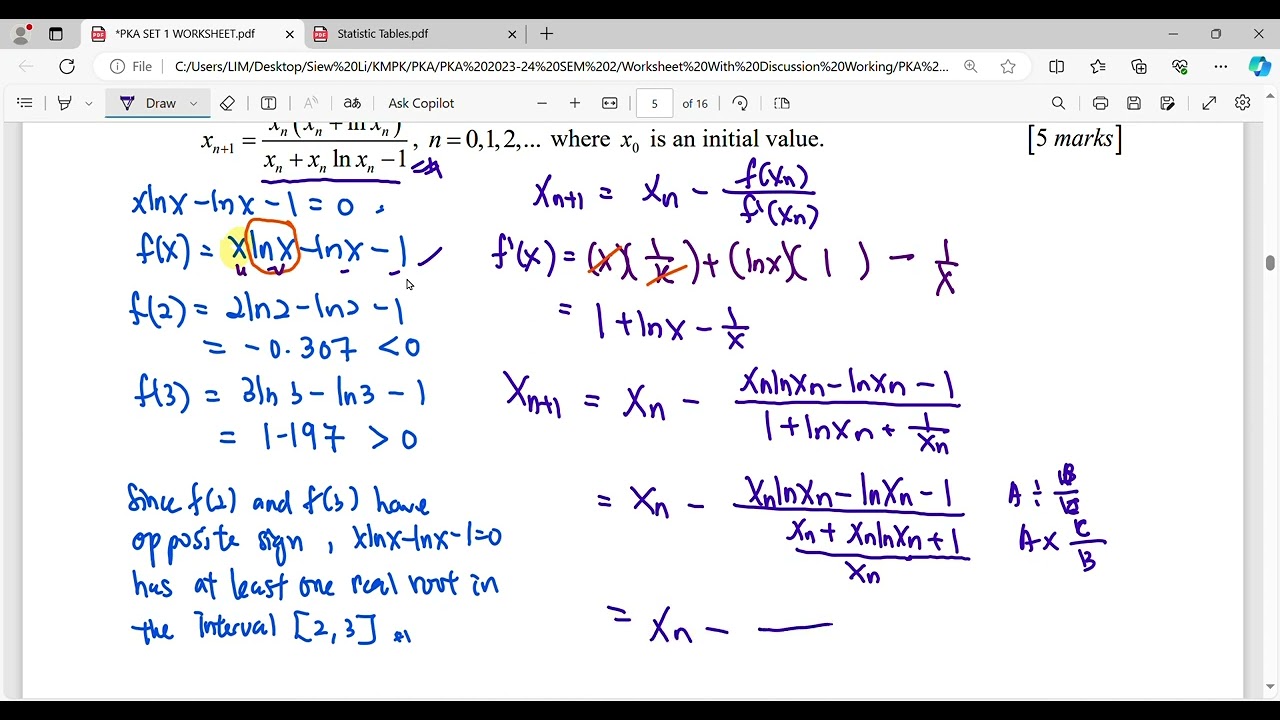 *PKA SET 1 WORKSHEET.pdf
Statistic Tables.pdf
File
C:/Users/LIM/Desktop/Siew%20Li/KMPK/PKA/PKA%202023-24%20SEM%202/Worksheet%20With%20Discussion%20Working/PKA%2...
Draw
Ask Copilot
5 of 16
x_{n+1} = x_n (x_n + ln x_n) / (x_n + x_n ln x_n − 1) , n = 0,1,2,... where x_0 is an initial value. [5 marks]
xlnx − lnx − 1 = 0 .
f(x) = xlnx − lnx − 1 ✓
u v
f(2) = 2ln2 − ln2 − 1
= −0.307 < 0
f(3) = 3ln3 − ln3 − 1
= 1.197 > 0
Since f(2) and f(3) have
opposite sign, xlnx−lnx−1=0
has at least one real root in
the interval [2,3]
x_{n+1} = x_n − f(x_n) / f'(x_n)
f'(x) = (x)(1/x) + (lnx)(1) − 1/x
= 1 + lnx − 1/x
x_{n+1} = x_n − (x_n lnx_n − lnx_n − 1) / (1 + lnx_n + 1/x_n)
= x_n − (x_n lnx_n − lnx_n − 1) / ((x_n + x_n lnx_n + 1) / x_n)
A ÷ B/C
A × C/B
= x_n −